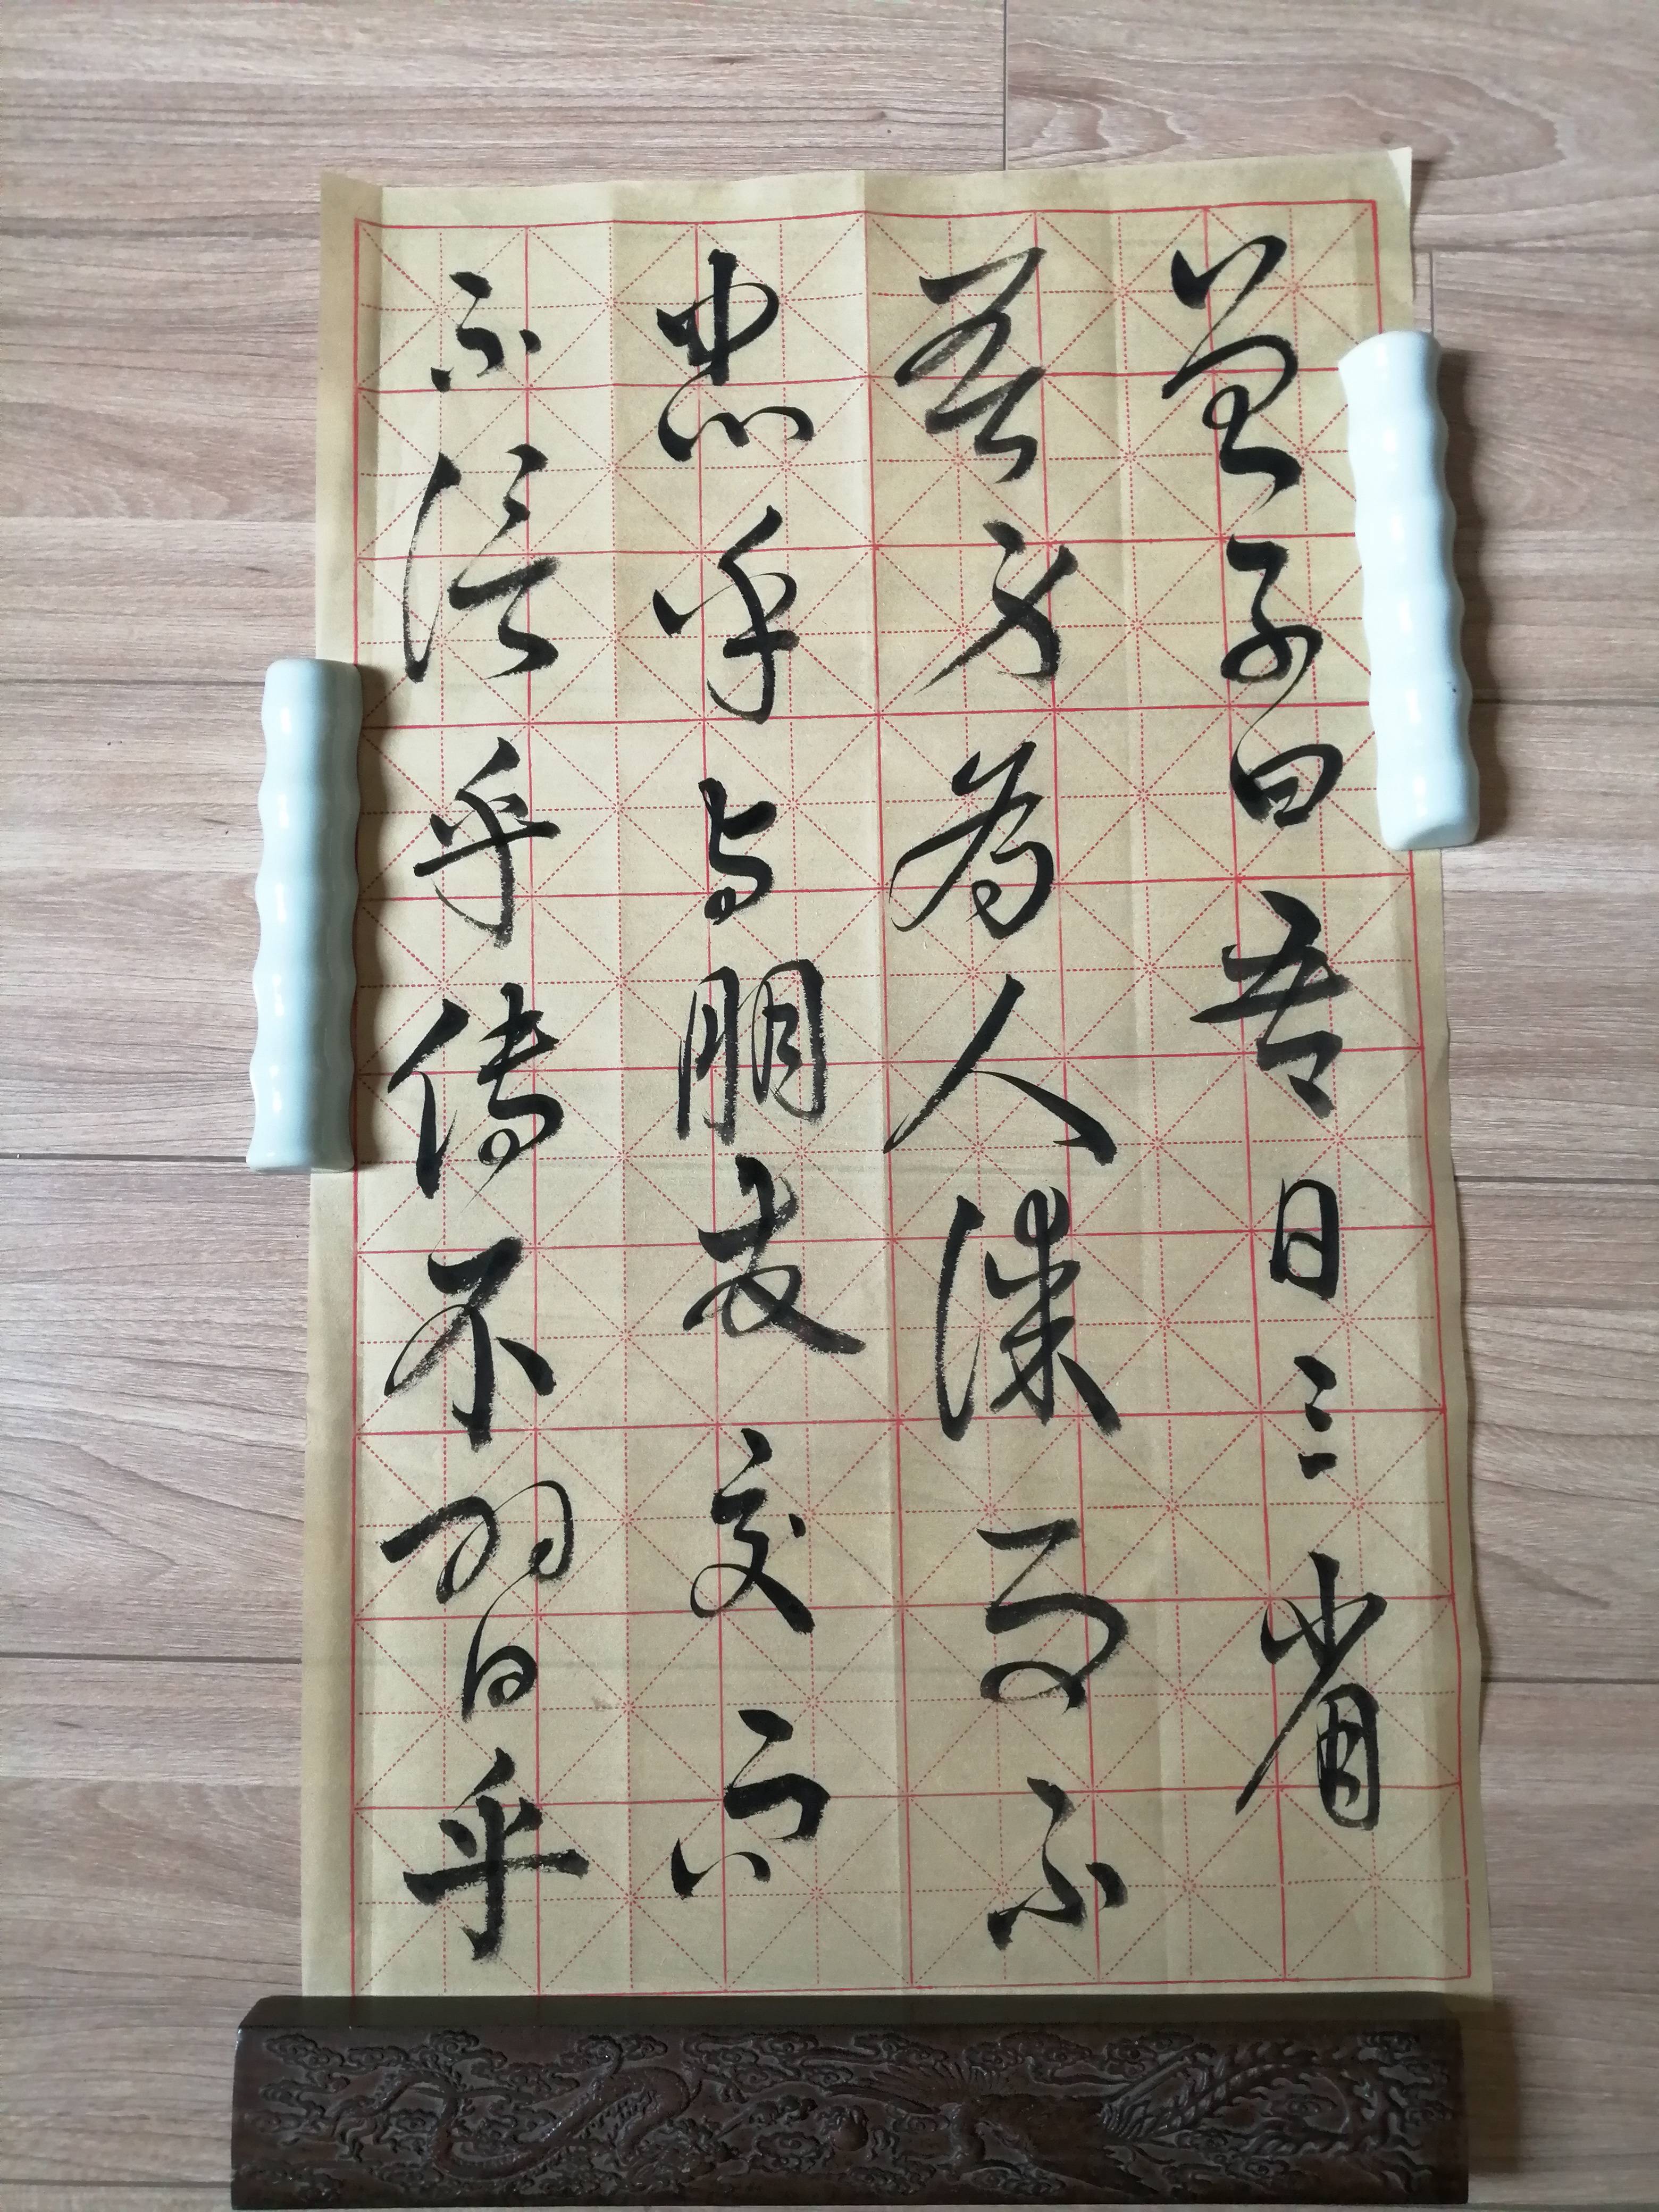 曾子曰吾日三省
吾身為人謀而不
忠呼与朋友交而
不信乎傳不習乎